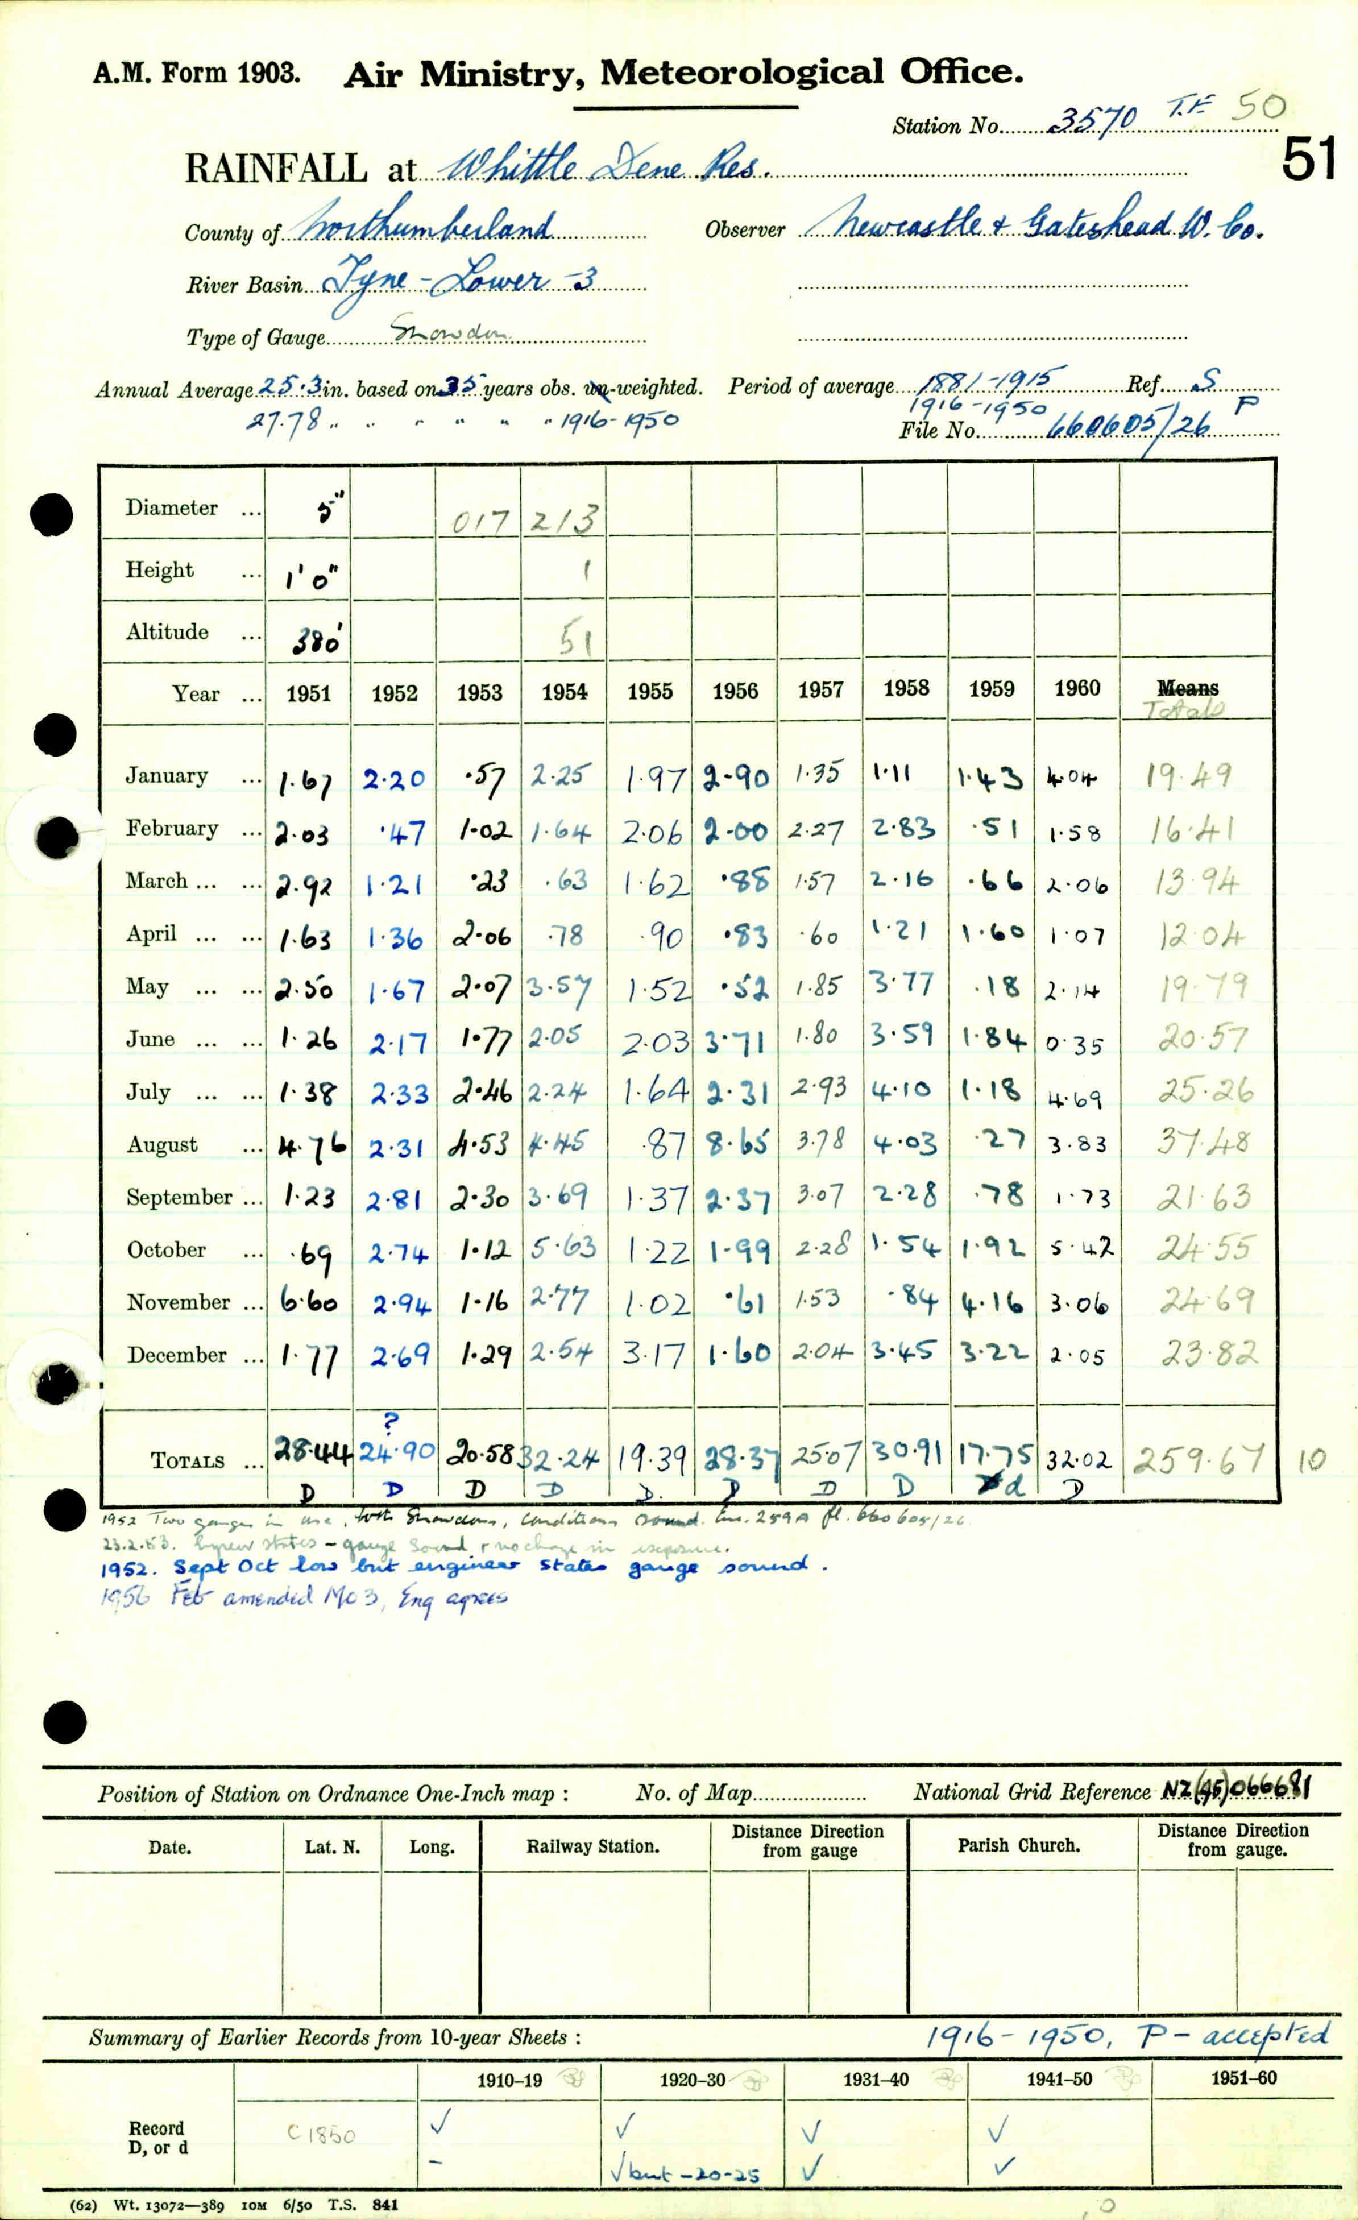 A.M. Form 1903. Air Ministry, Meteorological Office.
Station No. 3570 T.F. 50
51
RAINFALL at Whittle Dene Res.
County of Northumberland Observer Newcastle & Gateshead W. Co.
River Basin Tyne - Lower -3
Type of Gauge Snowdon
Annual Average 25.3 in. based on 35 years obs. un-weighted. Period of average 1881-1915 Ref. S
27.78 " " " " " " 1916-1950 1916-1950 P
File No. 660605/26
Diameter ... 5" 017 213
Height ... 1' 0" 1
Altitude ... 380' 51
Year ... 1951 1952 1953 1954 1955 1956 1957 1958 1959 1960 Means
Totals
January ... 1.67 2.20 .57 2.25 1.97 2.90 1.35 1.11 1.43 4.04 19.49
February ... 2.03 .47 1.02 1.64 2.06 2.00 2.27 2.83 .51 1.58 16.41
March ... ... 2.92 1.21 .23 .63 1.62 .88 1.57 2.16 .66 2.06 13.94
April ... ... 1.63 1.36 2.06 .78 .90 .83 .60 1.21 1.60 1.07 12.04
May ... ... 2.50 1.67 2.07 3.57 1.52 .52 1.85 3.77 .18 2.14 19.79
June ... ... 1.26 2.17 1.77 2.05 2.03 3.71 1.80 3.59 1.84 0.35 20.57
July ... ... 1.38 2.33 2.46 2.24 1.64 2.31 2.93 4.10 1.18 4.69 25.26
August ... 4.76 2.31 4.53 4.45 .87 8.65 3.78 4.03 .27 3.83 37.48
September ... 1.23 2.81 2.30 3.69 1.37 2.37 3.07 2.28 .78 1.73 21.63
October ... .69 2.74 1.12 5.63 1.22 1.99 2.28 1.54 1.92 5.42 24.55
November ... 6.60 2.94 1.16 2.77 1.02 .61 1.53 .84 4.16 3.06 24.69
December ... 1.77 2.69 1.29 2.54 3.17 1.60 2.04 3.45 3.22 2.05 23.82
?
TOTALS ... 28.44 24.90 20.58 32.24 19.39 28.37 25.07 30.91 17.75 32.02 259.67 10
D D D D D. D D D d D
1952 Two gauges in use, both Snowdons, conditions sound. 259A fl. 660605/26
23.2.53. states - gauge sound & no change in exposure.
1952. Sept Oct low but engineer states gauge sound.
1956 Feb amended Mo 3, Eng agrees
Position of Station on Ordnance One-Inch map : No. of Map National Grid Reference NZ(45)066681
Date. Lat. N. Long. Railway Station. Distance from gauge Direction Parish Church. Distance from gauge. Direction
Summary of Earlier Records from 10-year Sheets : 1916-1950, P - accepted
1910–19 1920–30 1931–40 1941–50 1951–60
Record C1850 ✓ ✓ ✓ ✓
D, or d - ✓ but -20-25 ✓ ✓
(62) Wt. 13072—389 10M 6/50 T.S. 841